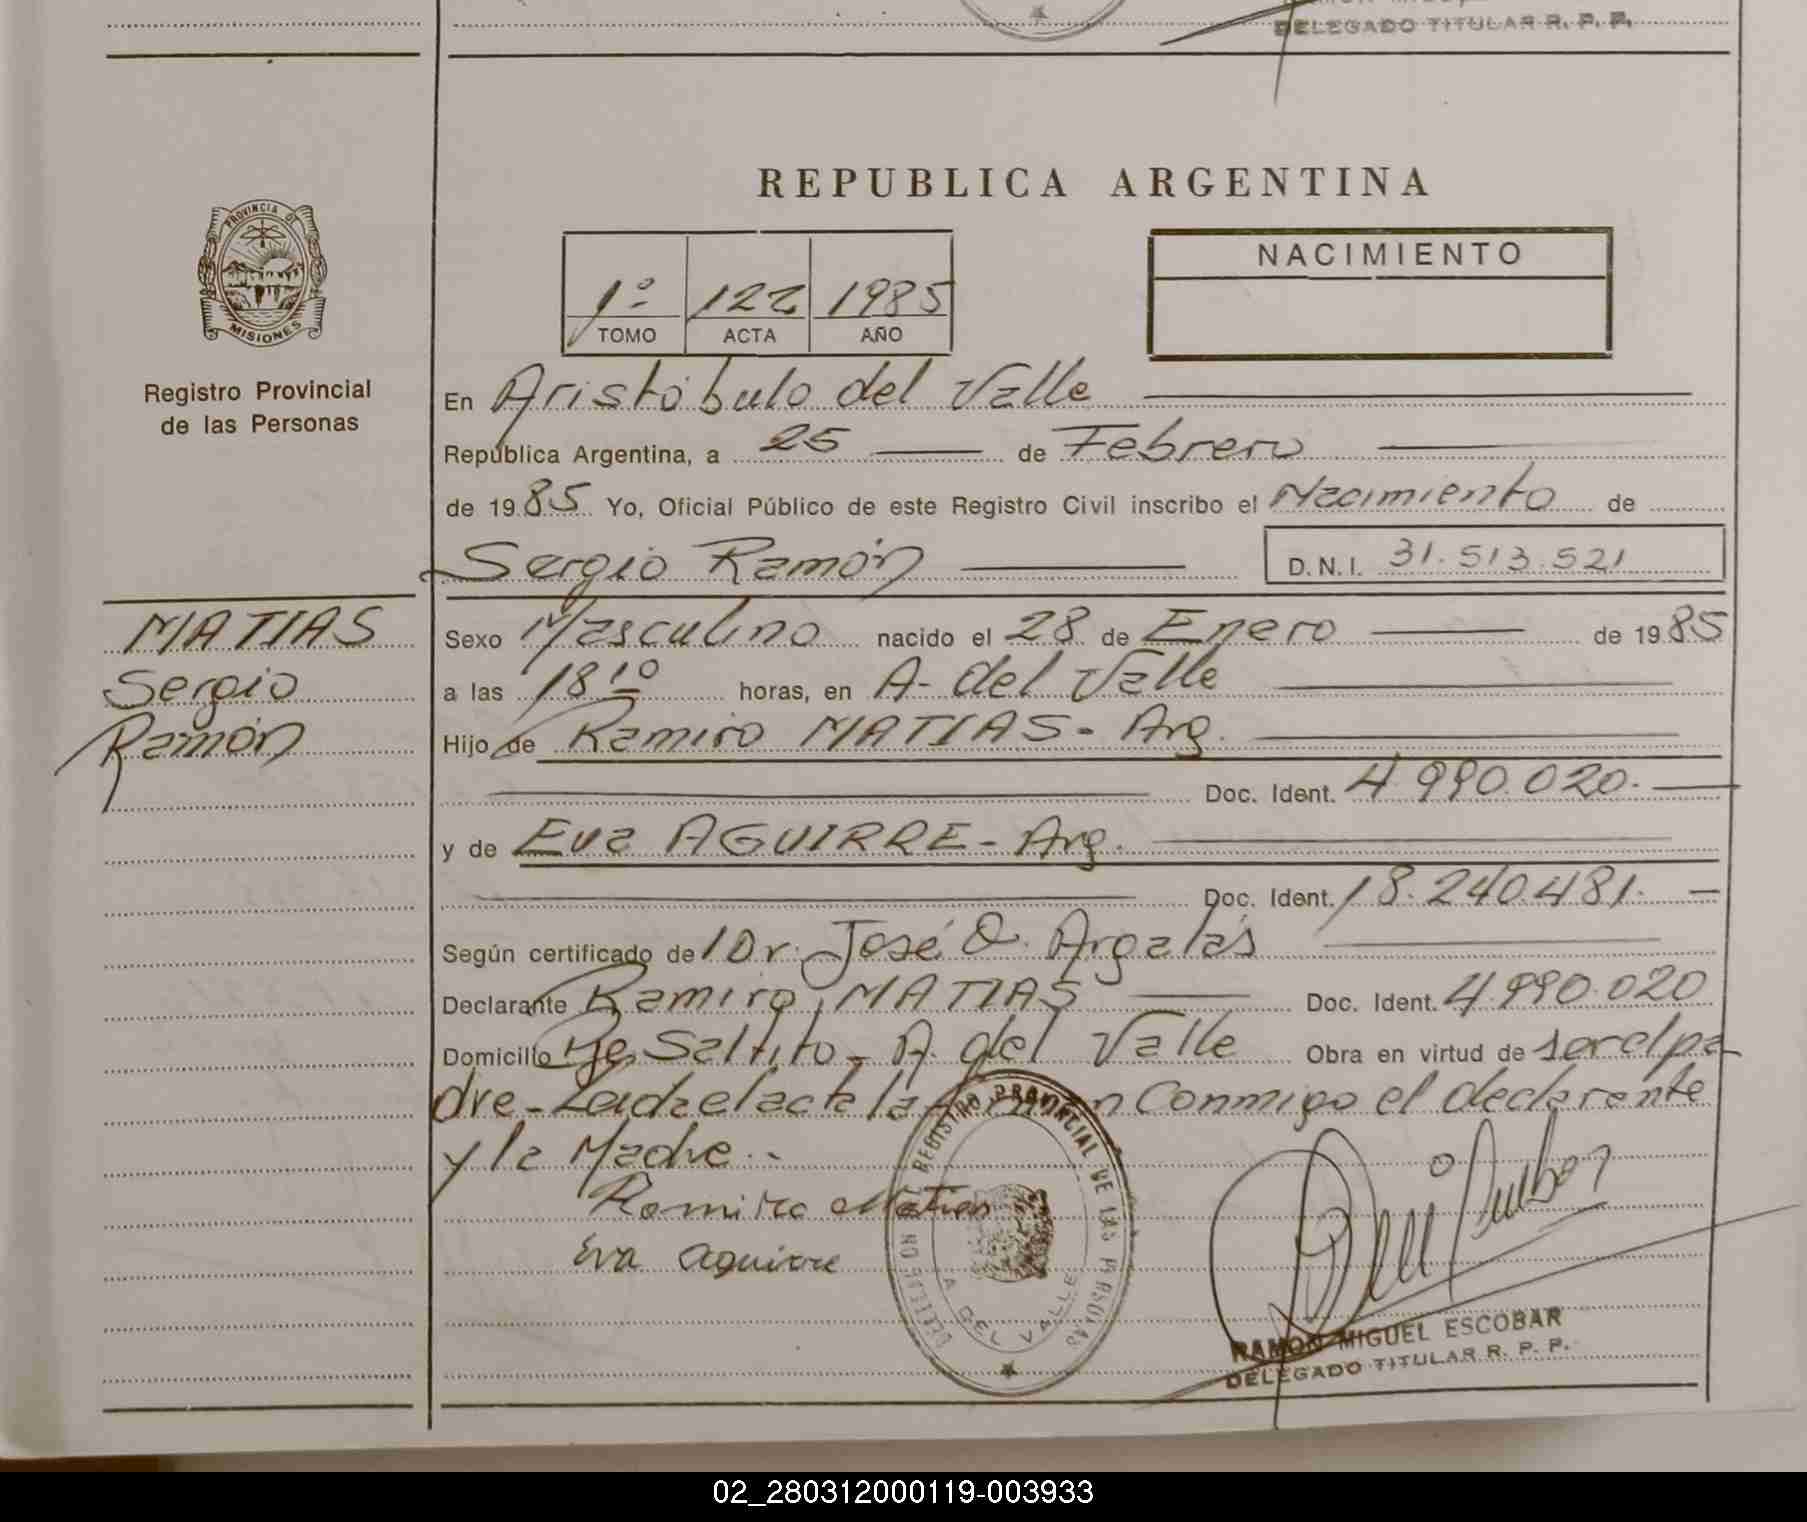 DELEGADO TITULAR R. P. P.
REPUBLICA ARGENTINA
PROVINCIA DE
MISIONES
Registro Provincial
de las Personas
1º 122 1985
TOMO ACTA AÑO
NACIMIENTO
En Aristóbulo del Valle
República Argentina, a 25 de Febrero
de 1985 Yo, Oficial Público de este Registro Civil inscribo el Nacimiento de
Sergio Ramón D.N.I. 31.513.521
MATIAS
Sergio
Ramón
Sexo Masculino nacido el 28 de Enero de 1985
a las 18 10 horas, en A. del Valle
Hijo de Ramiro MATIAS - Arg.
Doc. Ident. 4 990.020.
y de Eva AGUIRRE - Arg.
Doc. Ident. 18.240.481.
Según certificado de l Dr. José O. Argalás
Declarante Ramiro MATIAS Doc. Ident. 4.990.020
Domicilio Saltito - A. del Valle Obra en virtud de ser el pa
dre - Leída el acta la firman conmigo el declarante
y la Madre.-
Ramiro Matias
Eva aguirre
REGISTRO PROVINCIAL DE LAS PERSONAS
A DEL VALLE
RAMON MIGUEL ESCOBAR
DELEGADO TITULAR R. P. P.
02_280312000119-003933